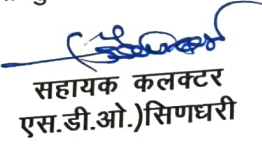 सहायक कलक्टर
एस.डी.ओ.)सिणधरी